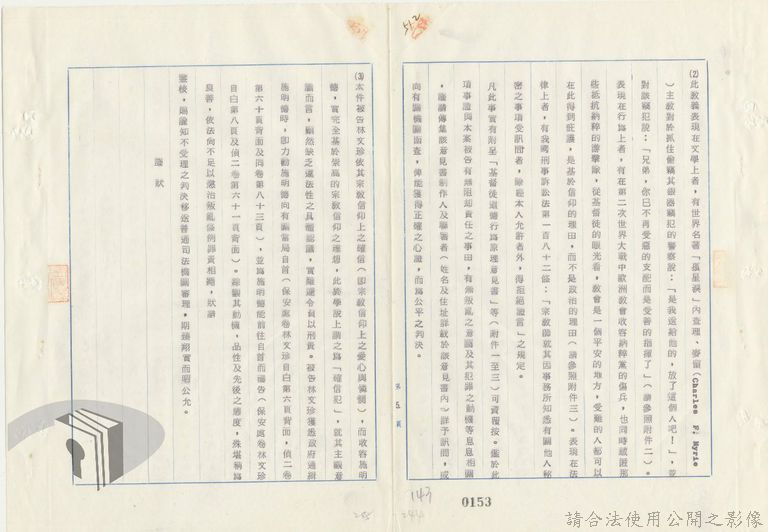 (2)此教義表現在文學上者,有世界名著「孤星淚」內查理、麥留(Charles F. Myrie
)主教對於抓住偷竊其銀器竊犯的警察說:「是我送給他的,放了這個人吧!」,並
對該竊犯說:「兄弟,你已不再受惡的支配而是受善的指揮了」(請參照附件二)。
表現在行為上者,有在第二次世界大戰中歐洲教會收容納粹黨的傷兵,也同時藏匿那
些抵抗納粹的游擊隊,從基督徒的眼光看,教會是一個平安的地方,受難的人都可以
在此得到庇護,是基於信仰的理由,而不是政治的理由(請參照附件三)。表現在法
律上者,有我國刑事訴訟法第一百八十二條:「宗教師就其因事務所知悉有關他人秘
密之事項受訊問者,除經本人允許者外,得拒絕證言」之規定。
凡此事實有附呈「基督徒道德行為原理意見書」等(附件一至三)可資覆按。鑑於此
,謹請傳集該意見書制作人及聯署者(姓名及住址詳載於該意見書內)詳予訊問,或
項事證與本案被告有無阻却責任之事由,有無叛亂之意圖及其犯罪之動機等息息相關
向有關機關函查,俾能獲得正確之心證,而為公平之判決。
第5.頁
(3)本件被告林文珍依其宗教信仰上之確信(即宗教信仰上之愛心與憐憫),而收容施明
德,實完全基於崇高的宗教信仰之理想,此於學說上謂之為「確信犯」,就其主觀意
識而言,顯然缺乏違法性之具體認識,實難遽令負以刑責。被告林文珍獲悉政府通緝
施明德時,即力勸施明德向有關當局自首(保安處卷林文珍自白第六頁背面,偵二卷
第六十頁背面及同卷第八十三頁),並為施明德能前往自首而禱告(保安處卷林文珍
自白第八頁及偵二卷第六十一頁背面)。綜觀其動機,品性及先後之態度,殊堪稱為
良善,依法尚不足以懲治叛亂條例罪責相繩,狀請
鑒核,賜諭知不受理之判決移送普通司法機關審理,期臻翔實而昭公允。
謹狀
143
0153
請合法使用公開之影像